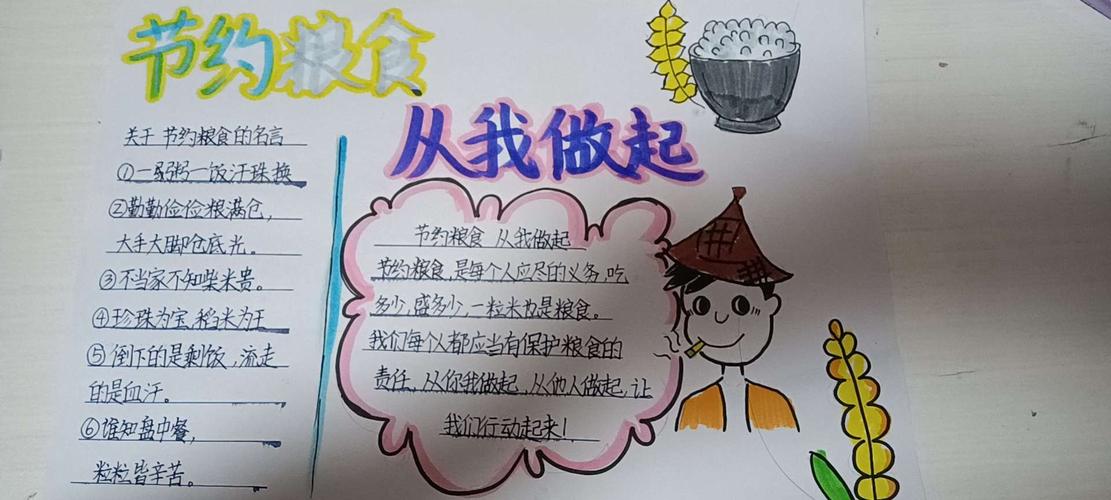 节约粮食
从我做起
关于 节约粮食的名言
①一粥一饭汗珠换
②勤勤俭俭粮满仓，
大手大脚仓底光。
③不当家不知柴米贵。
④珍珠为宝，稻米为王
⑤倒下的是剩饭，流走
的是血汗。
⑥谁知盘中餐，
粒粒皆辛苦。
节约粮食 从我做起
节约粮食，是每个人应尽的义务，吃
多少，盛多少，一粒米也是粮食。
我们每个人都应当有保护粮食的
责任，从你我做起，从他人做起，让
我们行动起来！